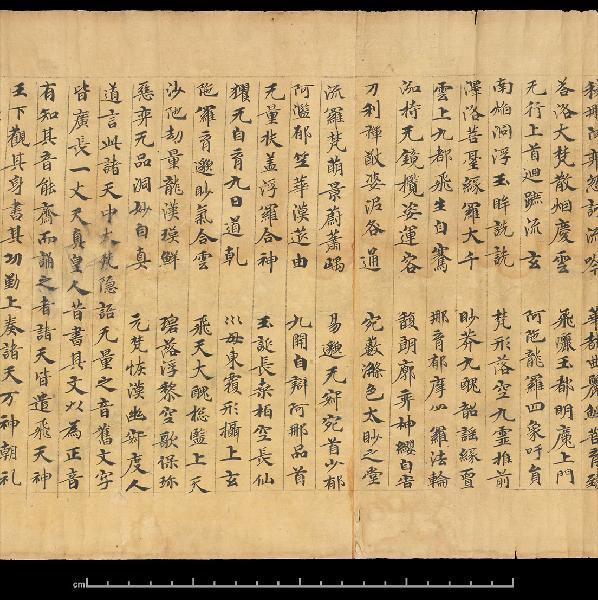 稼那阿奕忽訶流吟　華都曲麗鮮菩育臻
荅洛大梵散烟慶雲　飛灑玉都明魔上門
无行上首迴蹠流玄　阿陁龍羅四象吁員
南焰洞浮玉眸詵詵　梵形落空九靈推前
澤洛菩臺緣羅大千　眇莽九醜韶謡緣亶
雲上九都飛生自騫　那育郁摩 羅法輪
持无鏡攬姿運容　馥朗廓奕神纓自宮
刀利禪猷婆泥各通　宛藪滌色太眇之堂
流羅梵萌景蔚蕭嵎　易邈无寂宛首少郁
阿濫郁竺華漠莚由　九開自辯阿那品首
无量扶蓋浮羅合神　玉誕長桒柏空長仙
玃无自育九日道乹　巛母東霞形攝上玄
陁羅育邈眇氣合雲　飛天大醜揔監上天
沙陁劫量龍漢瑛鮮　碧落浮黎空歌保珎
惡弈无品洞妙自真　元梵恢漠幽寂度人
道言此諸天中大梵隱語无量之音舊文字
皆廣長一丈天真皇人昔書其文以為正音
有知其音能齋而誦之者諸天皆遣飛天神
王下觀其身書其功勤上奏諸天万神朝礼